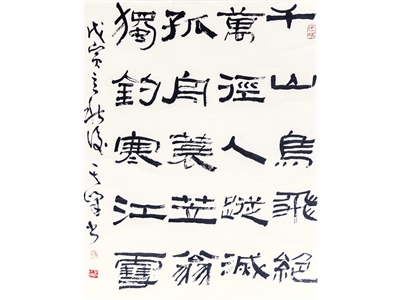 千山鳥飛絕
萬徑人蹤滅
孤舟蓑笠翁
獨釣寒江雪
戊寅立秋後